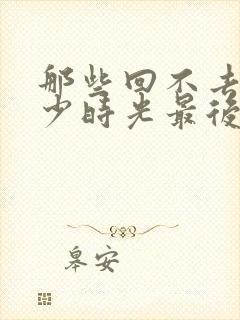 那些回不去
少時光最後
皋安